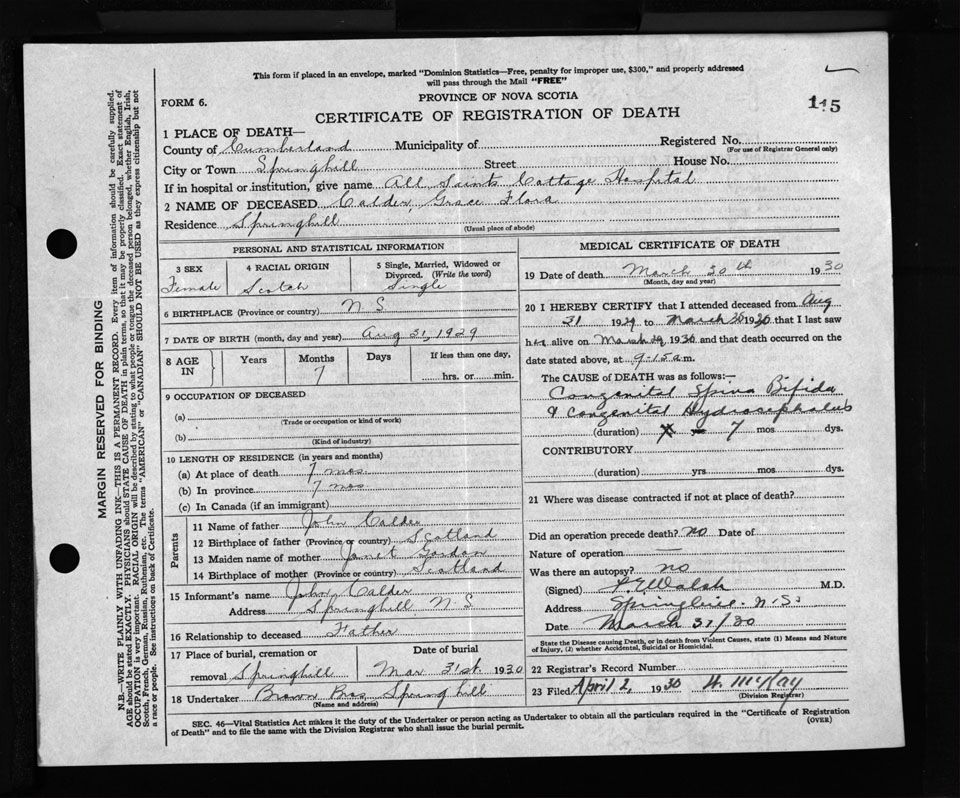 This form if placed in an envelope, marked "Dominion Statistics—Free, penalty for improper use, $300," and properly addressed
will pass through the Mail "FREE"
FORM 6.
PROVINCE OF NOVA SCOTIA
115
CERTIFICATE OF REGISTRATION OF DEATH
1 PLACE OF DEATH—
County of Cumberland Municipality of Registered No.
(For use of Registrar General only)
City or Town Springhill Street House No.
If in hospital or institution, give name All Saints Cottage Hospital
2 NAME OF DECEASED Calder, Grace Flora
Residence Springhill
(Usual place of abode)
PERSONAL AND STATISTICAL INFORMATION
3 SEX
Female
4 RACIAL ORIGIN
Scotch
5 Single, Married, Widowed or
Divorced. (Write the word)
Single
6 BIRTHPLACE (Province or country) N S
7 DATE OF BIRTH (month, day and year) Aug 31, 1929
8 AGE IN
Years
Months
7
Days
If less than one day,
hrs. or min.
9 OCCUPATION OF DECEASED
(a)
(Trade or occupation or kind of work)
(b)
(Kind of industry)
10 LENGTH OF RESIDENCE (in years and months)
(a) At place of death 7 mos.
(b) In province 7 mos
(c) In Canada (if an immigrant)
Parents
11 Name of father John Calder
12 Birthplace of father (Province or country) Scotland
13 Maiden name of mother Janet Gordon
14 Birthplace of mother (Province or country) Scotland
15 Informant's name John Calder
Address Springhill N S
16 Relationship to deceased Father
17 Place of burial, cremation or
removal Springhill
Date of burial
Mar 31st. 1930
18 Undertaker Brown Bros Springhill
(Name and address)
MEDICAL CERTIFICATE OF DEATH
19 Date of death March 30th 1930
(Month, day and year)
20 I HEREBY CERTIFY that I attended deceased from Aug
31 1929 to March 30 1930 that I last saw
her alive on March 29 1930 and that death occurred on the
date stated above, at 9-15 a.m.
The CAUSE of DEATH was as follows:—
Congenital Spina Bifida
& Congenital Hydrocephalus
(duration) yrs 7 mos dys.
CONTRIBUTORY
(duration) yrs mos dys.
21 Where was disease contracted if not at place of death?
Did an operation precede death? no Date of
Nature of operation —
Was there an autopsy? no
(Signed) Walsh M.D.
Address Springhill. N.S.
Date March 31/30
State the Disease causing Death, or in death from Violent Causes, state (1) Means and Nature
of Injury, (2) whether Accidental, Suicidal or Homicidal.
22 Registrar's Record Number
23 Filed April 2, 1930 H. McKay
(Division Registrar)
SEC. 46—Vital Statistics Act makes it the duty of the Undertaker or person acting as Undertaker to obtain all the particulars required in the "Certificate of Registration
of Death" and to file the same with the Division Registrar who shall issue the burial permit.
(OVER)
MARGIN RESERVED FOR BINDING
N.B.—WRITE PLAINLY WITH UNFADING INK—THIS IS A PERMANENT RECORD. Every item of information should be carefully supplied.
AGE should be stated EXACTLY. PHYSICIANS should STATE CAUSE OF DEATH in plain terms, so that it may be properly classified. Exact statement of
OCCUPATION is very important. RACIAL ORIGIN will be described by stating to what people or tongue the deceased person belonged, whether English, Irish,
Scotch, French, German, Russian, Ruthenian, etc. The terms "AMERICAN" or "CANADIAN" SHOULD NOT BE USED as they express citizenship but not
a race or people. See instructions on back of Certificate.